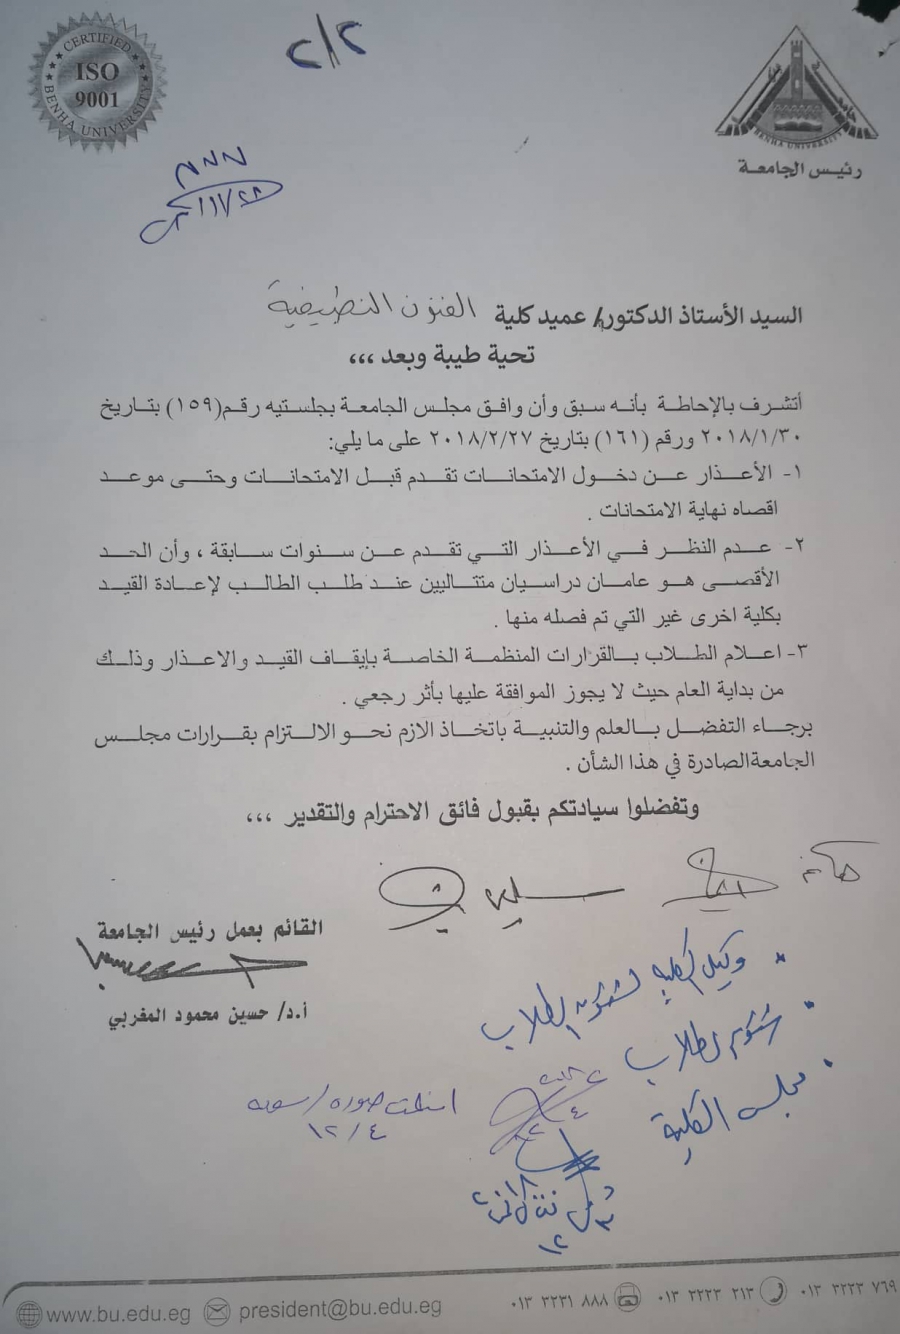 ٢/٢
CERTIFIED
ISO
9001
BENHA UNIVERSITY
BENHA UNIVERSITY
رئيس الجامعة
١١/٢٨
السيد الأستاذ الدكتور/ عميد كلية الفنون التطبيقية
تحية طيبة وبعد ,,,
أتشرف بالإحاطة بأنه سبق وأن وافق مجلس الجامعة بجلستيه رقم(١٥٩) بتاريخ
٢٠١٨/١/٣٠ ورقم (١٦١) بتاريخ ٢٠١٨/٢/٢٧ على ما يلي:
١- الأعذار عن دخول الامتحانات تقدم قبل الامتحانات وحتى موعد
اقصاه نهاية الامتحانات .
٢- عدم النظر في الأعذار التي تقدم عن سنوات سابقة ، وأن الحد
الأقصى هو عامان دراسيان متتاليين عند طلب الطالب لإعادة القيد
بكلية اخرى غير التي تم فصله منها .
٣- اعلام الطلاب بالقرارات المنظمة الخاصة بإيقاف القيد والاعذار وذلك
من بداية العام حيث لا يجوز الموافقة عليها بأثر رجعي .
برجاء التفضل بالعلم والتنبية باتخاذ الازم نحو الالتزام بقرارات مجلس
الجامعةالصادرة في هذا الشأن .
وتفضلوا سيادتكم بقبول فائق الاحترام والتقدير ,,,
القائم بعمل رئيس الجامعة
أ.د/ حسين محمود المغربي
وكيل الكلية لشئون الطلاب
شئون الطلاب
مجلس الكلية
استلمت صورة/
١٢/٤
www.bu.edu.eg president@bu.edu.eg ٠١٣ ٣٢٣١ ٨٨٨ ٠١٣ ٣٢٢٢ ٢١٣ ٠١٣ ٣٢٣٣ ٧٦٩